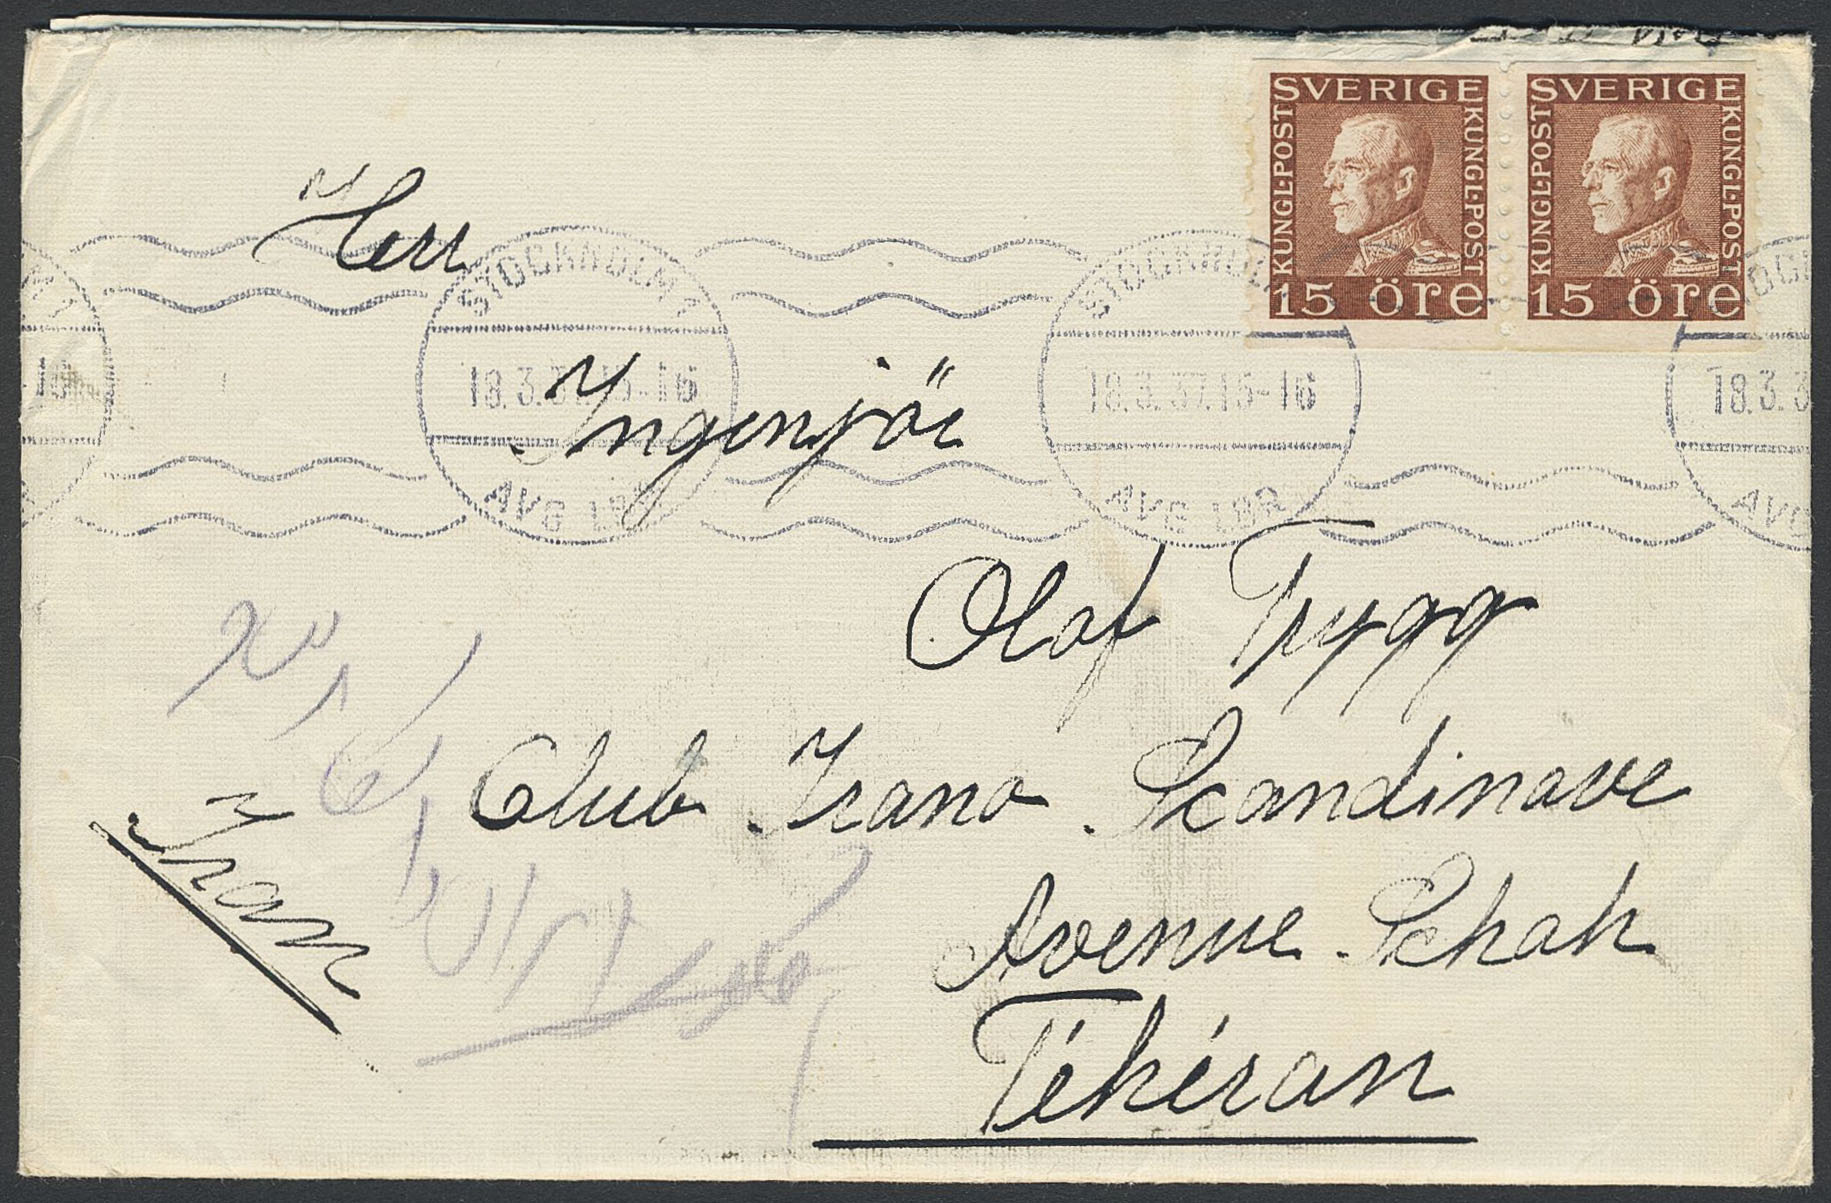 SVERIGE
KUNGL·POST
KUNGL·POST
15 öre
SVERIGE
KUNGL·POST
KUNGL·POST
15 öre
STOCKHOLM 1
18.3.37.15-16
AVG LBR
STOCKHOLM
18.3.37.15-16
AVG LBR
18.3.3
AVG
16
Herr
Ingenjör
Olaf Trygg
Club Irano Scandinave
Avenue Schah
Téhéran
Iran